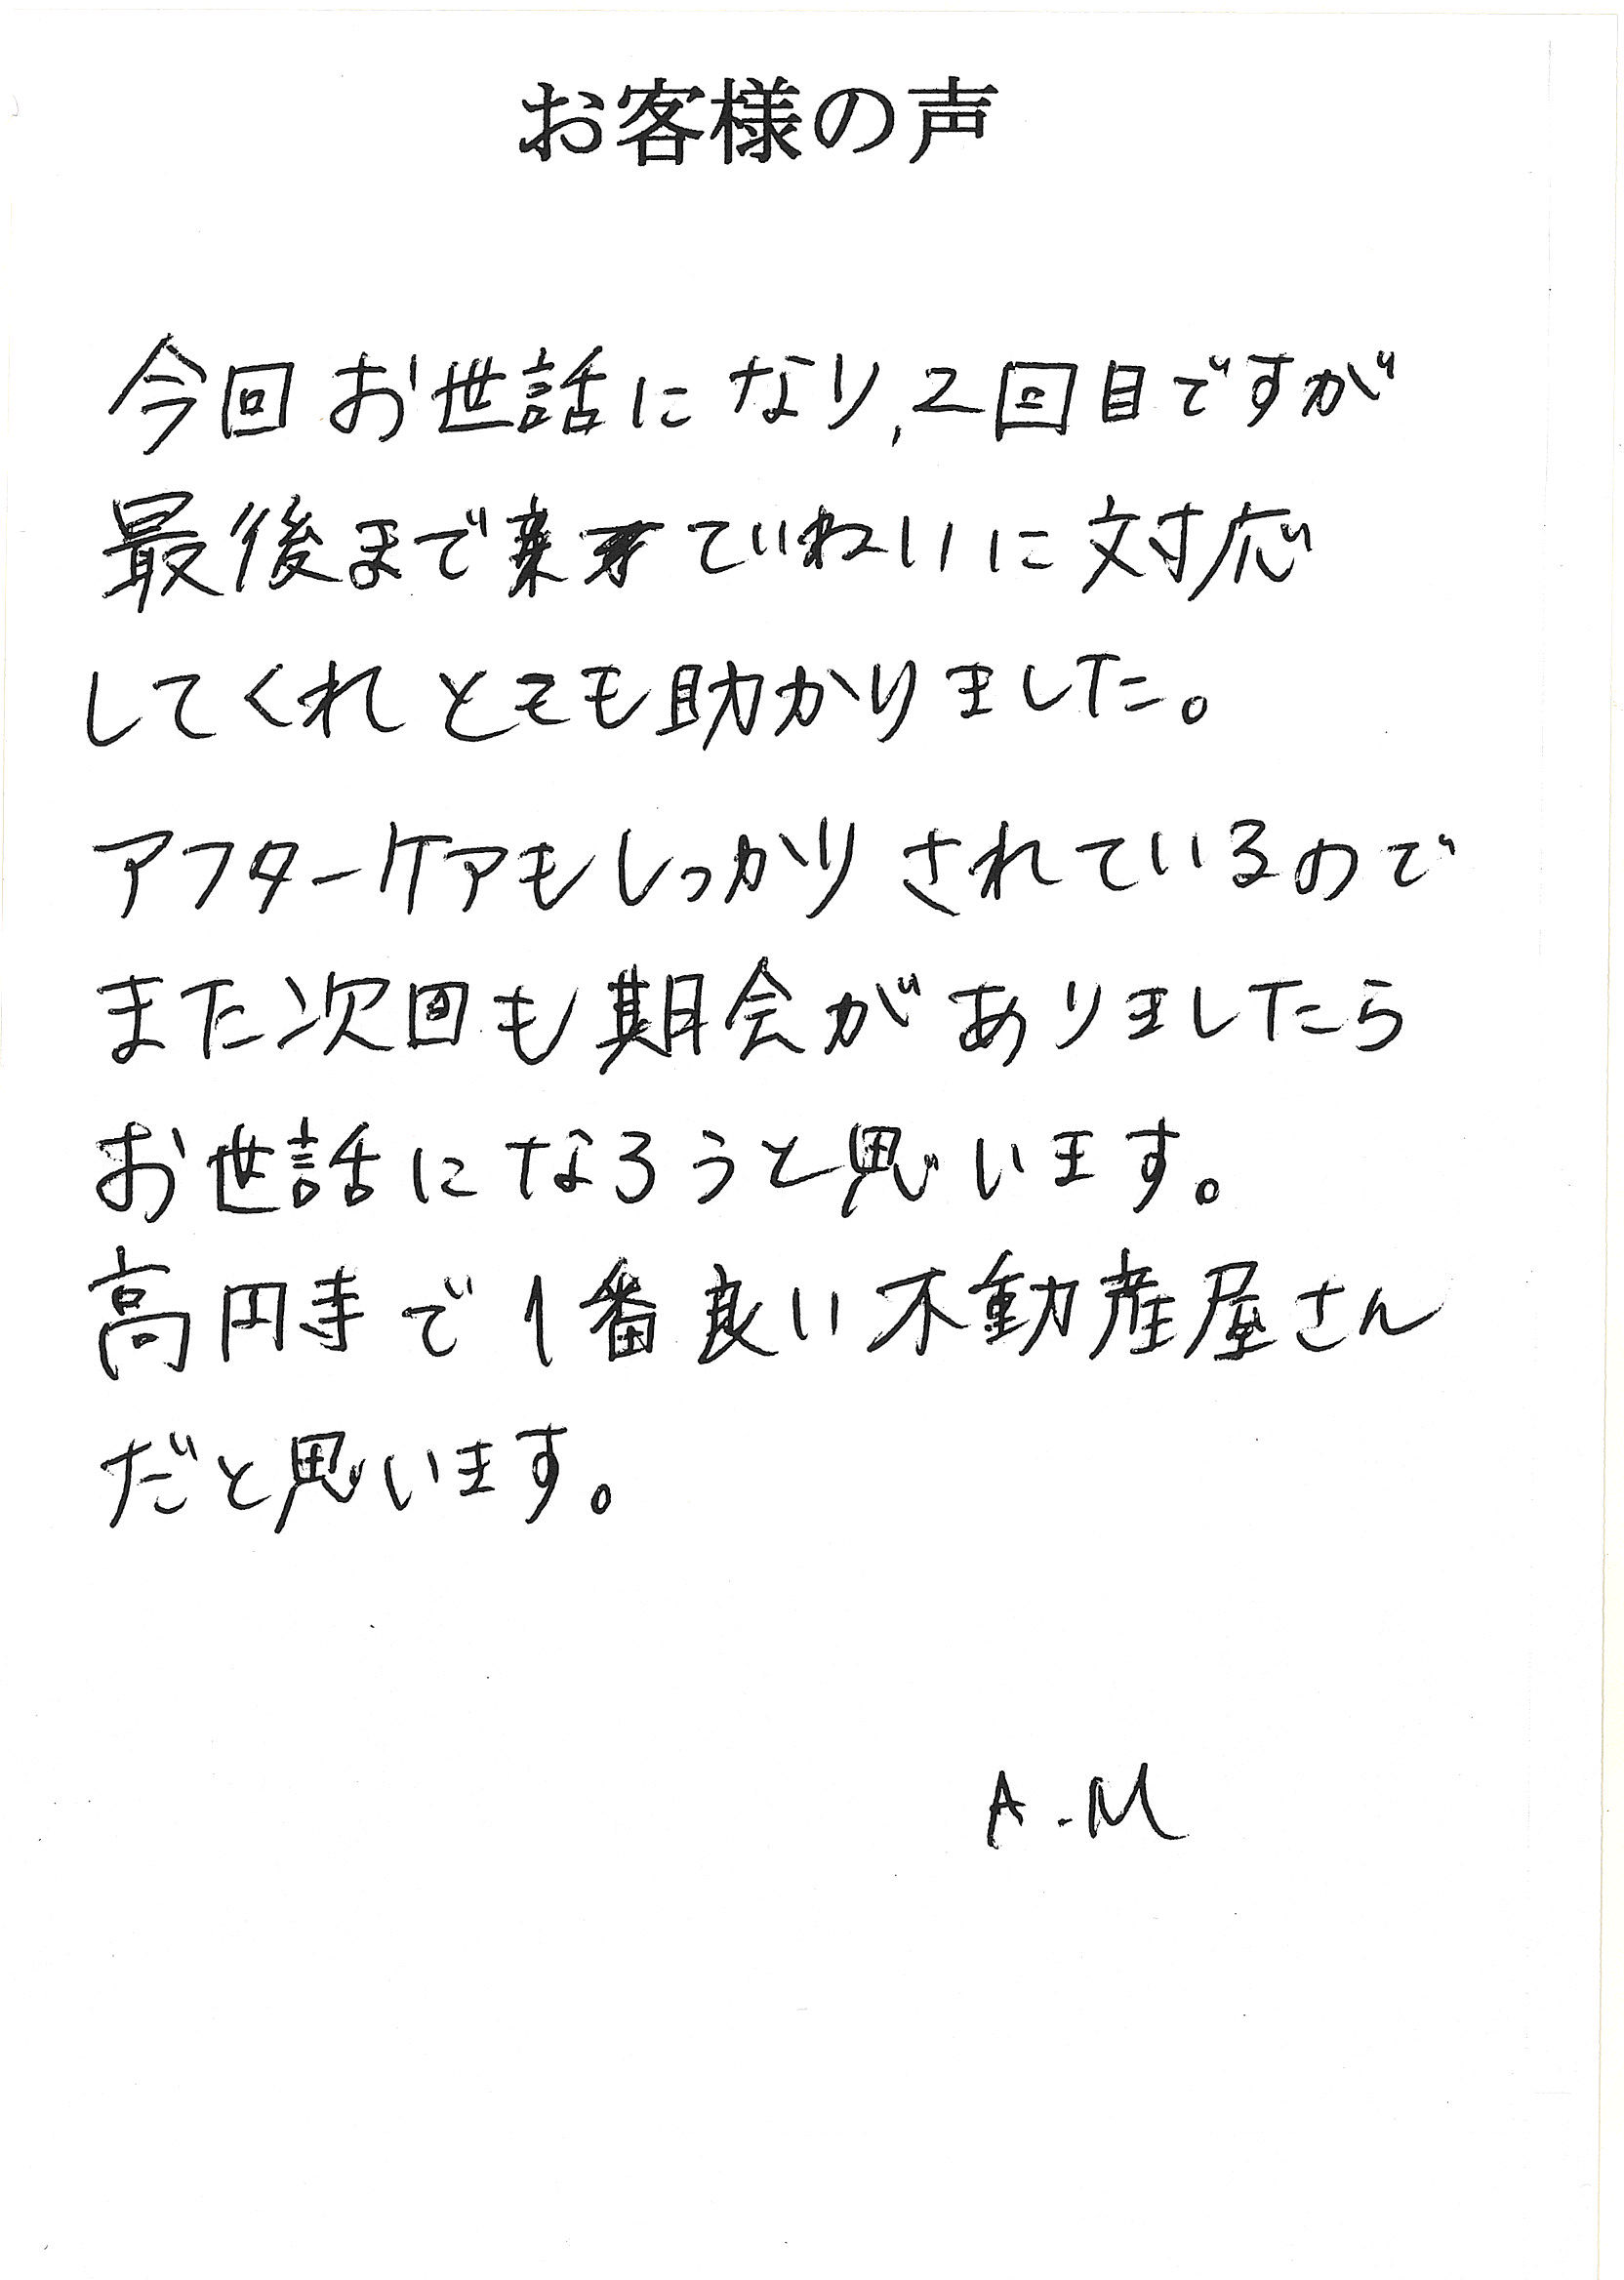 お客様の声
今回お世話になり、2回目ですが
最後まで ていねいに対応
してくれとても助かりました。
アフターケアもしっかりされているので
また次回も期会がありましたら
お世話になろうと思います。
高円寺で1番良い不動産屋さん
だと思います。
A.M